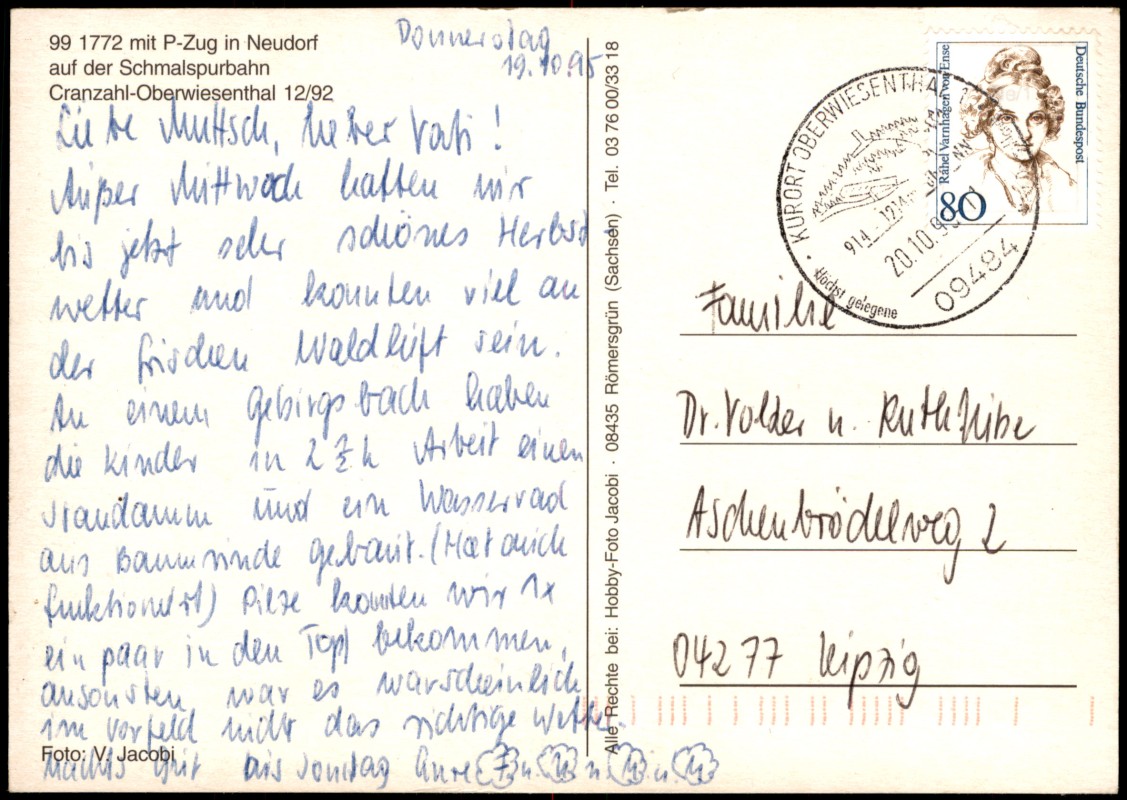 99 1772 mit P-Zug in Neudorf
auf der Schmalspurbahn
Cranzahl-Oberwiesenthal 12/92
Donnerstag
19.10.95
Liebe Muttsch, lieber Vati!
Außer Mittwoch hatten wir
bis jetzt sehr schönes Herbst
wetter und konnten viel an
der frischen Waldluft sein.
An einem Gebirgsbach haben
die Kinder in 2 ½ h Arbeit einen
Staudamm und ein Wasserrad
aus Baumrinde gebaut. (Hat auch
funktioniert) Pilze konnten wir 1x
ein paar in den Topf bekommen,
ansonsten war es warscheinlich
im Vorfeld nicht das richtige Wetter.
Machts gut bis Sonntag Eure
Foto: V. Jacobi
Alle Rechte bei: Hobby-Foto Jacobi · 08435 Römersgrün (Sachsen) · Tel. 03 76 00/33 18
Deutsche Bundespost
Rahel Varnhagen von Ense
80
KURORT OBERWIESENTHAL 1
914 - 1214
20.10.95
09484
Höchst gelegene
Familie
Dr. Volker u. Ruth
Aschenbrödelweg 2
04277 Leipzig